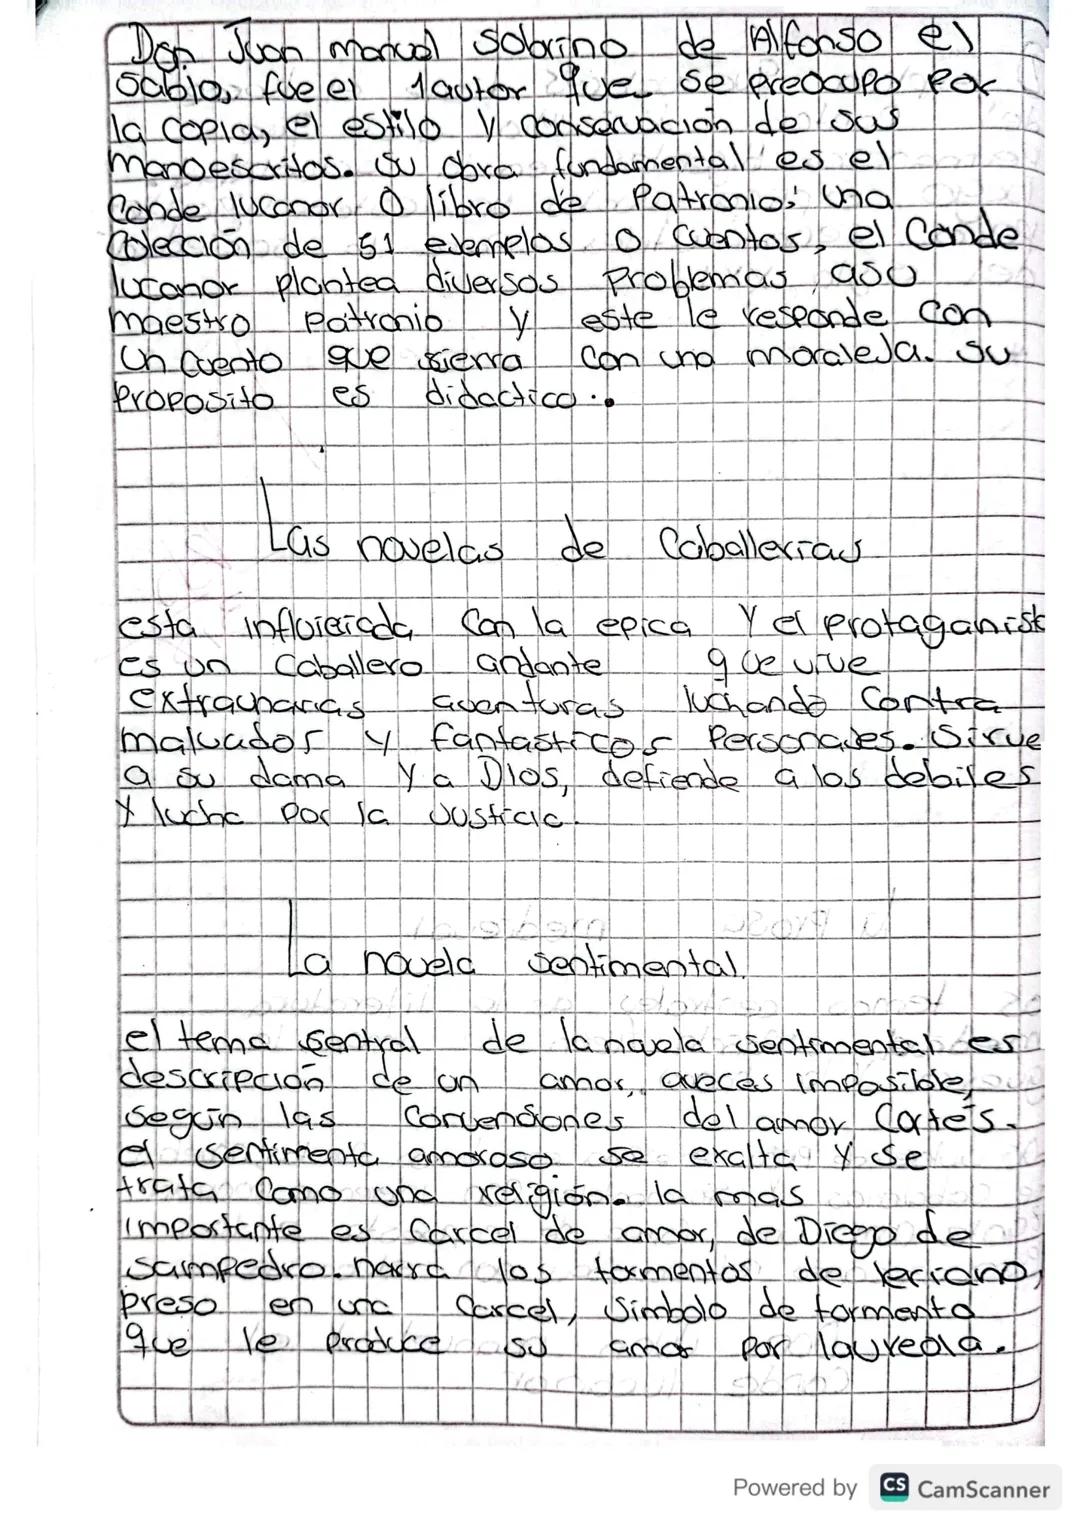 Don Juan manuel sobrino de Alfonso el
sabio, fue el 1 autor que se preocupo por
la copia, el estilo y conservación de sus
manoescritos. su obra fundamental es el
Conde lucanor o libro de Patronio: una
colección de 51 ejemplos o cuentos, el Conde
lucanor plantea diversos problemas asu
maestro patronio y este le responde con
un cuento que sierra con una moraleja. su
proposito es didactico..
Las novelas de Caballerias
esta influieicda con la epica y el protaganist
es un Caballero andante que vive
extraunarias aventuras luchando contra
malvados y fantasticos personajes. Sirve
a su dama y a Dios, defiende a los debiles
y lucha por la justicia.
La novela sentimental.
el tema sentral de la novela sentimental es
descripción de un amor, aveces imposible,
según las convenciones del amor Cortés.
el sentimento amoroso se exalta y se
trata como una religión. la mas
importante es Carcel de amor, de Diego de
sampedro. narra los tormentos de leriano,
preso en una carcel, simbolo de tormento
que le produce su amor por laureola.
Powered by CS CamScanner